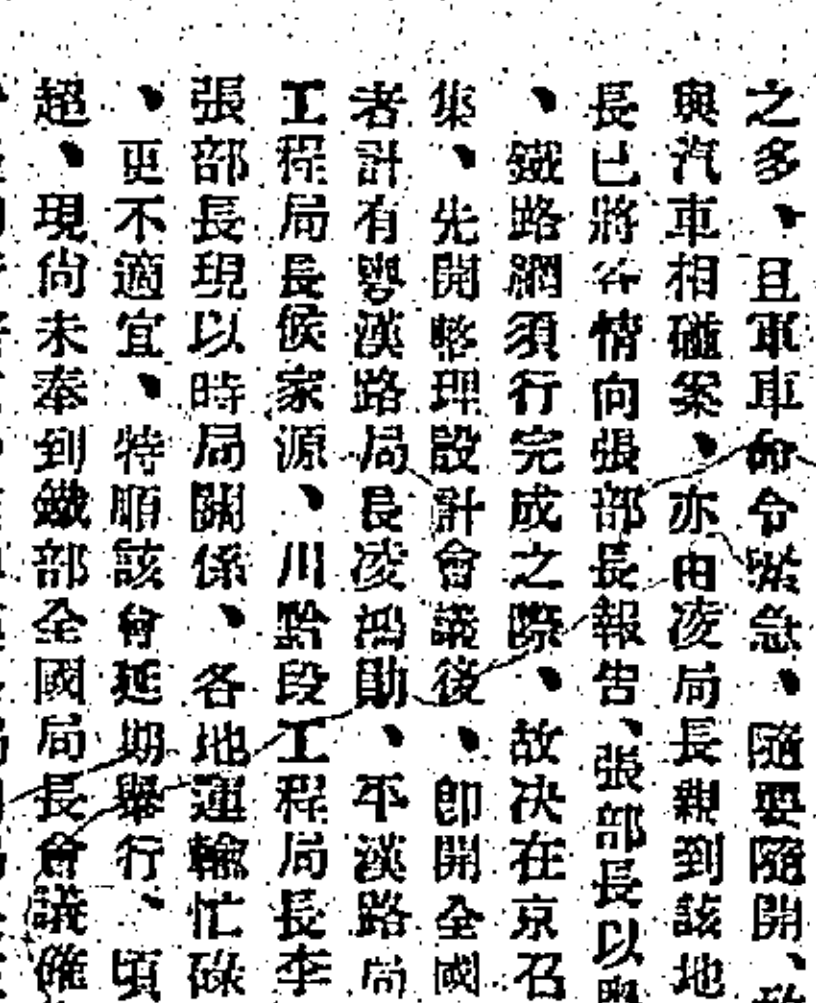 之多、且軍車命令緊急、隨要隨開、
與汽車相碰案、亦由凌局長親到該地
長已將各情向張部長報告、張部長以
、鐵路網須行完成之際、故決在京召
集、先開整理設計會議後、即開全國
者計有粵漢路局長凌鴻勛、平漢路局
工程局長侯家源、川黔段工程局長李
張部長現以時局關係、各地運輸忙碌
、更不適宜、特順該會延期舉行、頃
超、現尚未奉到鐵部全國局長會議確